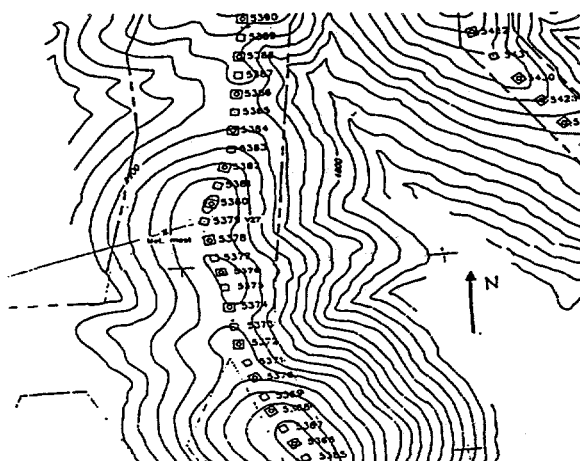 5390
5389
5388
5387
5386
5385
5384
5383
5382
5381
5380
5379 V27
5378
5377
5376
5375
5374
5373
5372
5371
5370
5369
5368
5367
5366
5365
5422
5421
5420
N